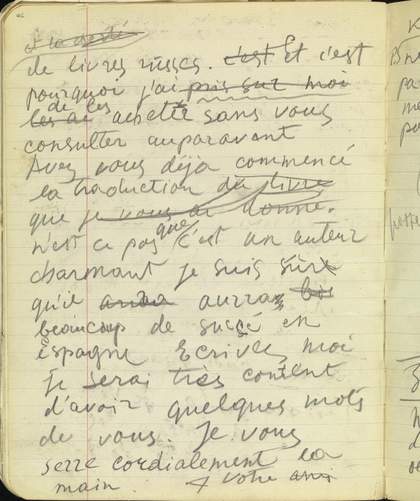 de livres russes. c'est Et c'est
pourquoi j'ai pris sur moi
de les
les ai acheté sans vous
consulter auparavant
Avez vous déja commencé
la traduction du livre
que je vous ai donné.
n'est ce pas que c'est un auteur
charmant je suis sûre
qu'il aura aurra
beaucoup de succé en
Espagne Ecrivez moi
Je serai très content
d'avoir quelques mots
de vous. Je vous
serre cordialement la
main. Votre ami